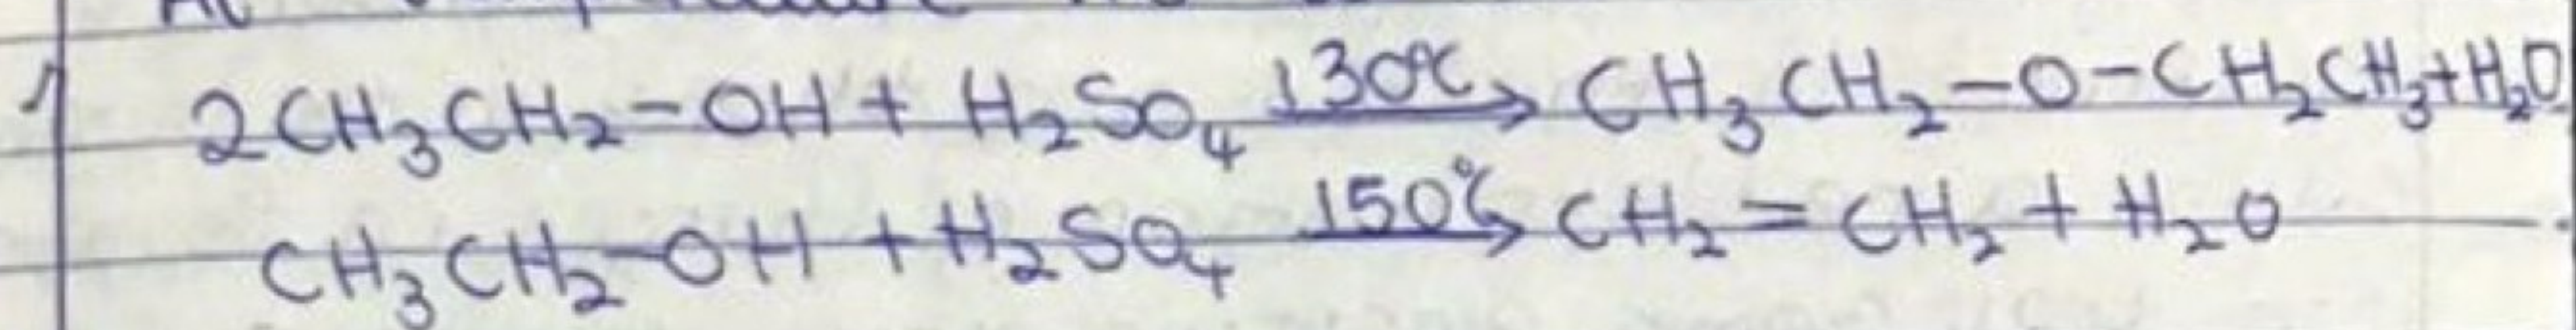 1 2CH₃CH₂-OH + H₂SO₄ 130°C→ CH₃CH₂-O-CH₂CH₃+H₂O
CH₃CH₂-OH + H₂SO₄ 150°C→ CH₂=CH₂ + H₂O